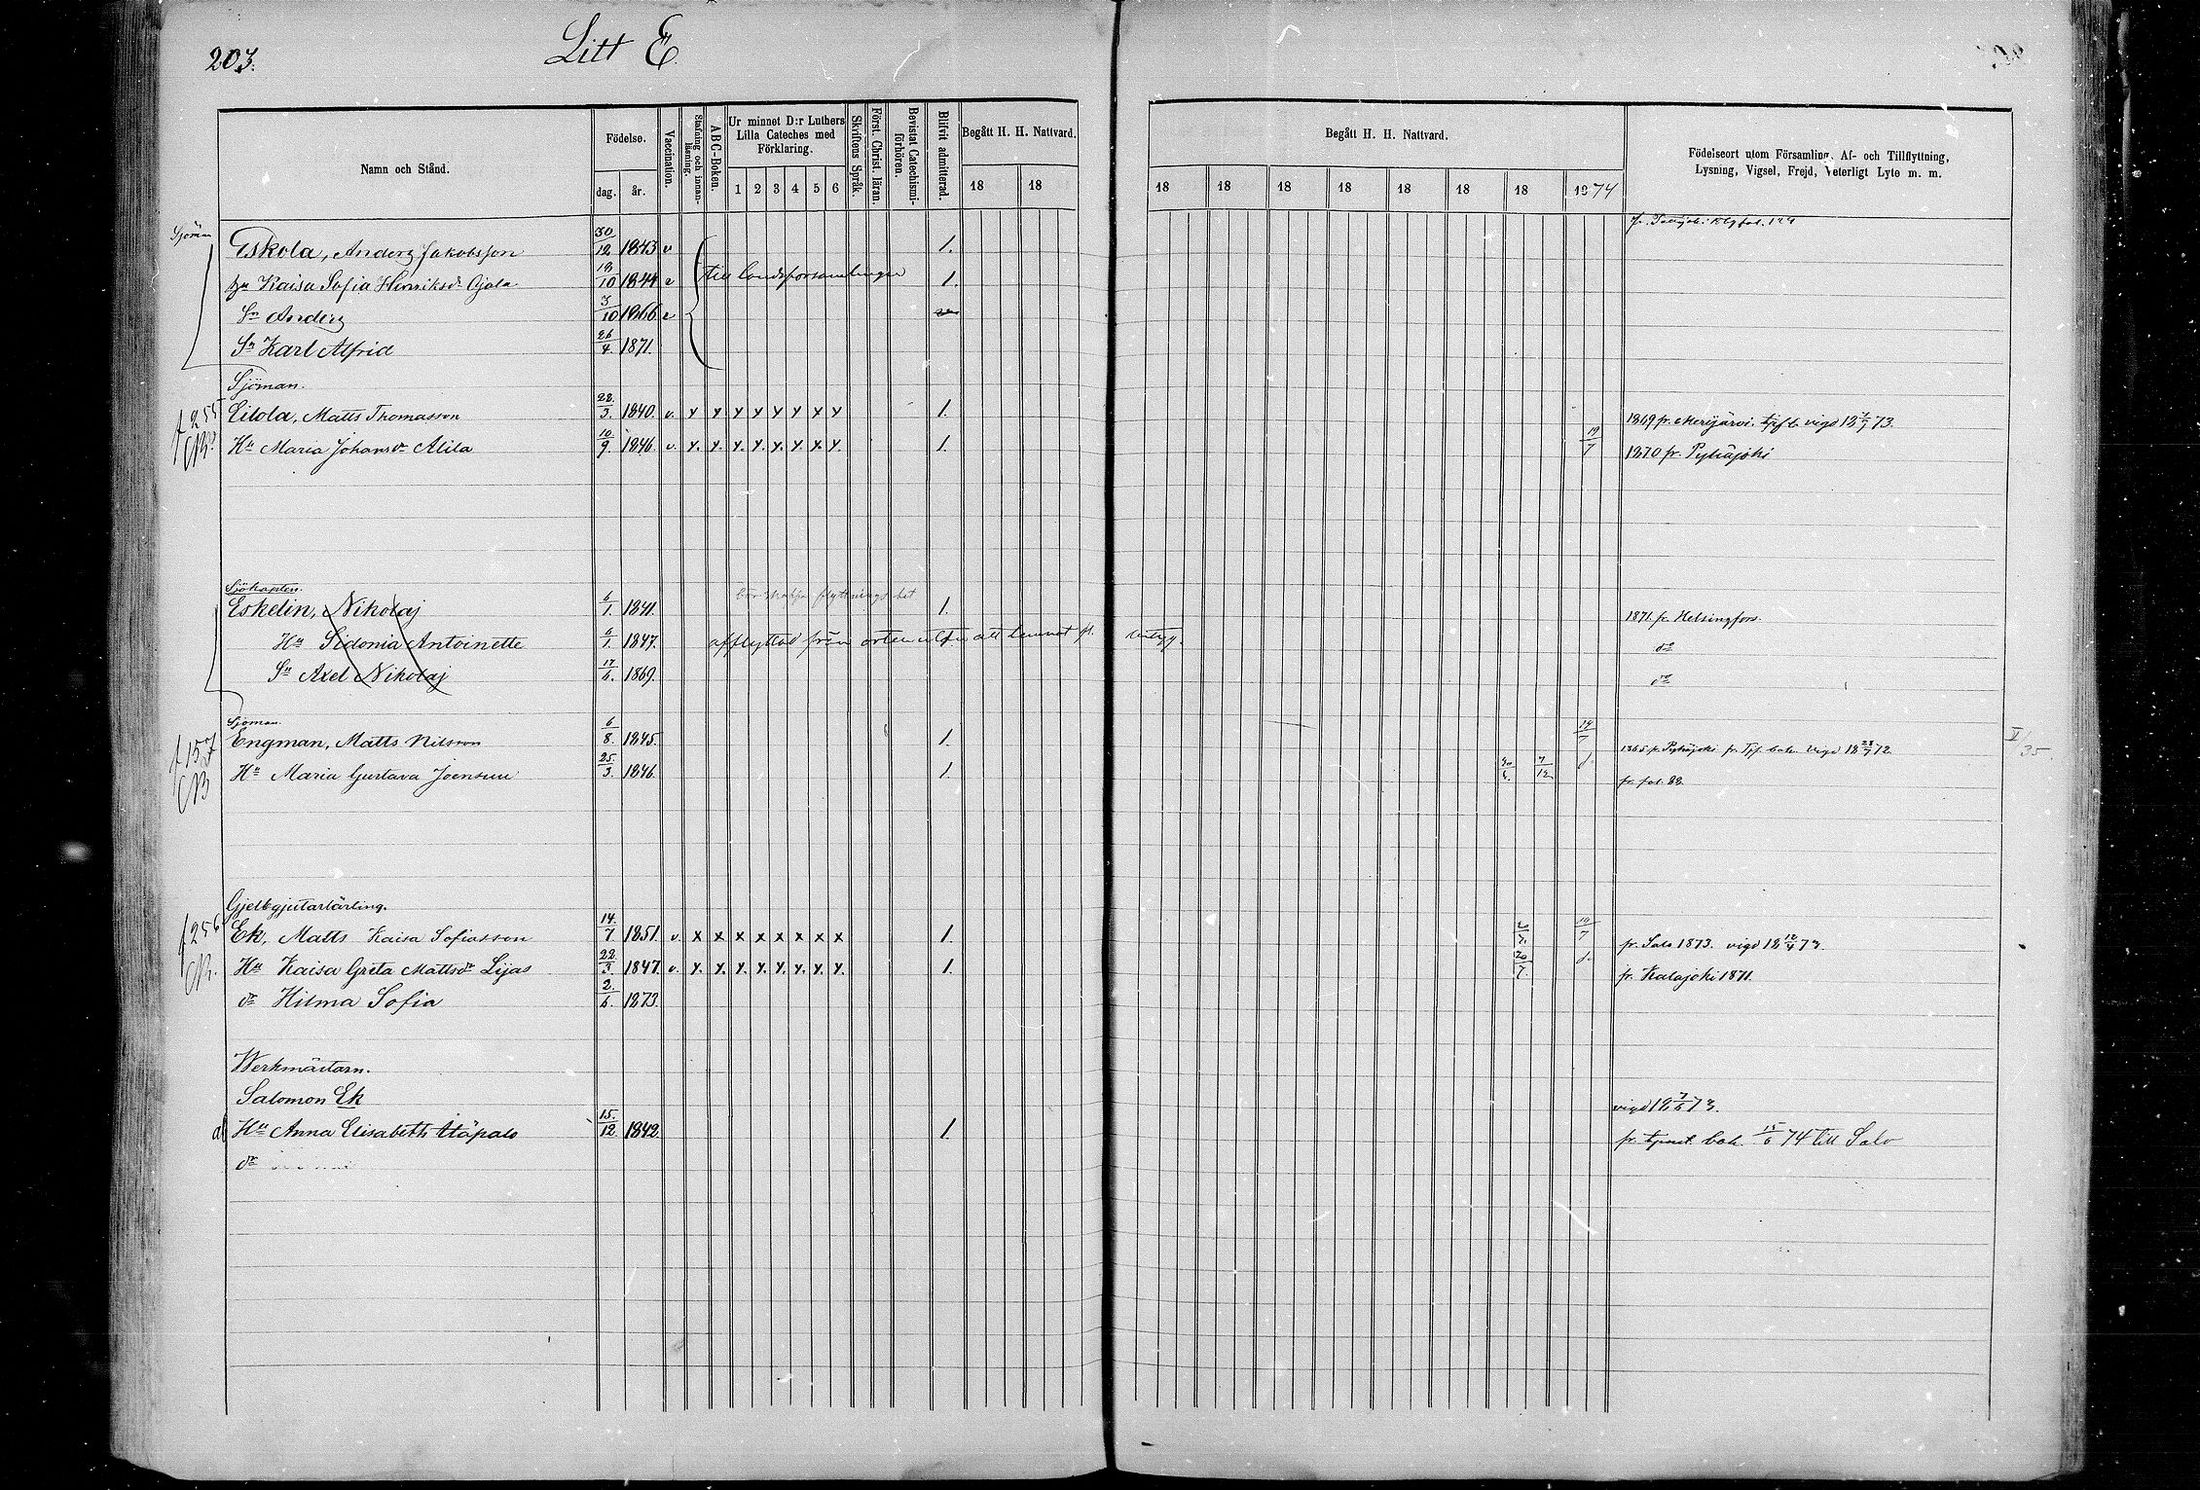 203.
Litt E
Namn och Stånd.
Födelse.
dag.
år.
Vaccination.
Stafning och innanläsning.
ABC-Boken.
Ur minnet D:r Luthers
Lilla Cateches med
Förklaring.
1 2 3 4 5 6
Skriftens Språk.
Först. Christ. läran.
Bevistat Catechismi-
förhören.
Blifvit admitterad.
Begått H. H. Nattvard.
18 18
Begått H. H. Nattvard.
18 18 18 18 18 18 18 1874
Födelseort utom Församling, Af- och Tillflyttning,
Lysning, Vigsel, Frejd, Veterligt Lyte m. m.
Sjöman
Eskola, Anders Jakobsson 30/12 1843 v 1.
Kaisa Sofia Henriksdr Ojala 10 1844 v till landsförsamlingen 1.
Sn Anders 3/10 1866 v
Sn Karl Alfrid 26/4 1871.
Sjöman.
f 255 Eilola, Matts Thomasson 28/3. 1840. v. x x x x x x x x 1. 1869 fr. Merijärvi. vigd 18 73.
Hu Maria Johansdr Alila 10/9. 1846. v. x. x. x. x. x. x. x x. 1. 19/7 1870 fr. Pyhäjoki
Sjökapten.
Eskelin, Nikolaj 6/1. 1841. 1. 1871 fr. Helsingfors.
Hu Sidonia Antoinette 6/1. 1847. afflyttad från orten utan att lemnat do
Sn Axel Nikolaj 17/6. 1869. do
Sjöman.
f 157 Engman, Matts Nilsson 6/8. 1845. 1. 19/7 1865 fr. Pyhäjoki vigd 18 28/7 72
Hu Maria Gustava Joensuu 25./3. 1846. 1. 7/12 fr. fol. 88.
V/35
Gjelbgjutarlärling.
f 256 Ek, Matts Kaisa Sofiasson 14./7 1851. v. x x x x x x x x 1. 19/7 fr. Salo 1873. vigd 18 12/4 73.
Hu Kaisa Greta Mattsdr Lijas 22/3. 1847. v. x. x. x. x. x. x. x. x. 1. 20/7. fr. Kalajoki 1871.
dr Hilma Sofia 2./6. 1873.
Werkmästarn.
Salomon Ek vigd 18 73.
Hu Anna Elisabeth Ytäpalo 15./12. 1842. 1. 15/6 74 till Salo
dr